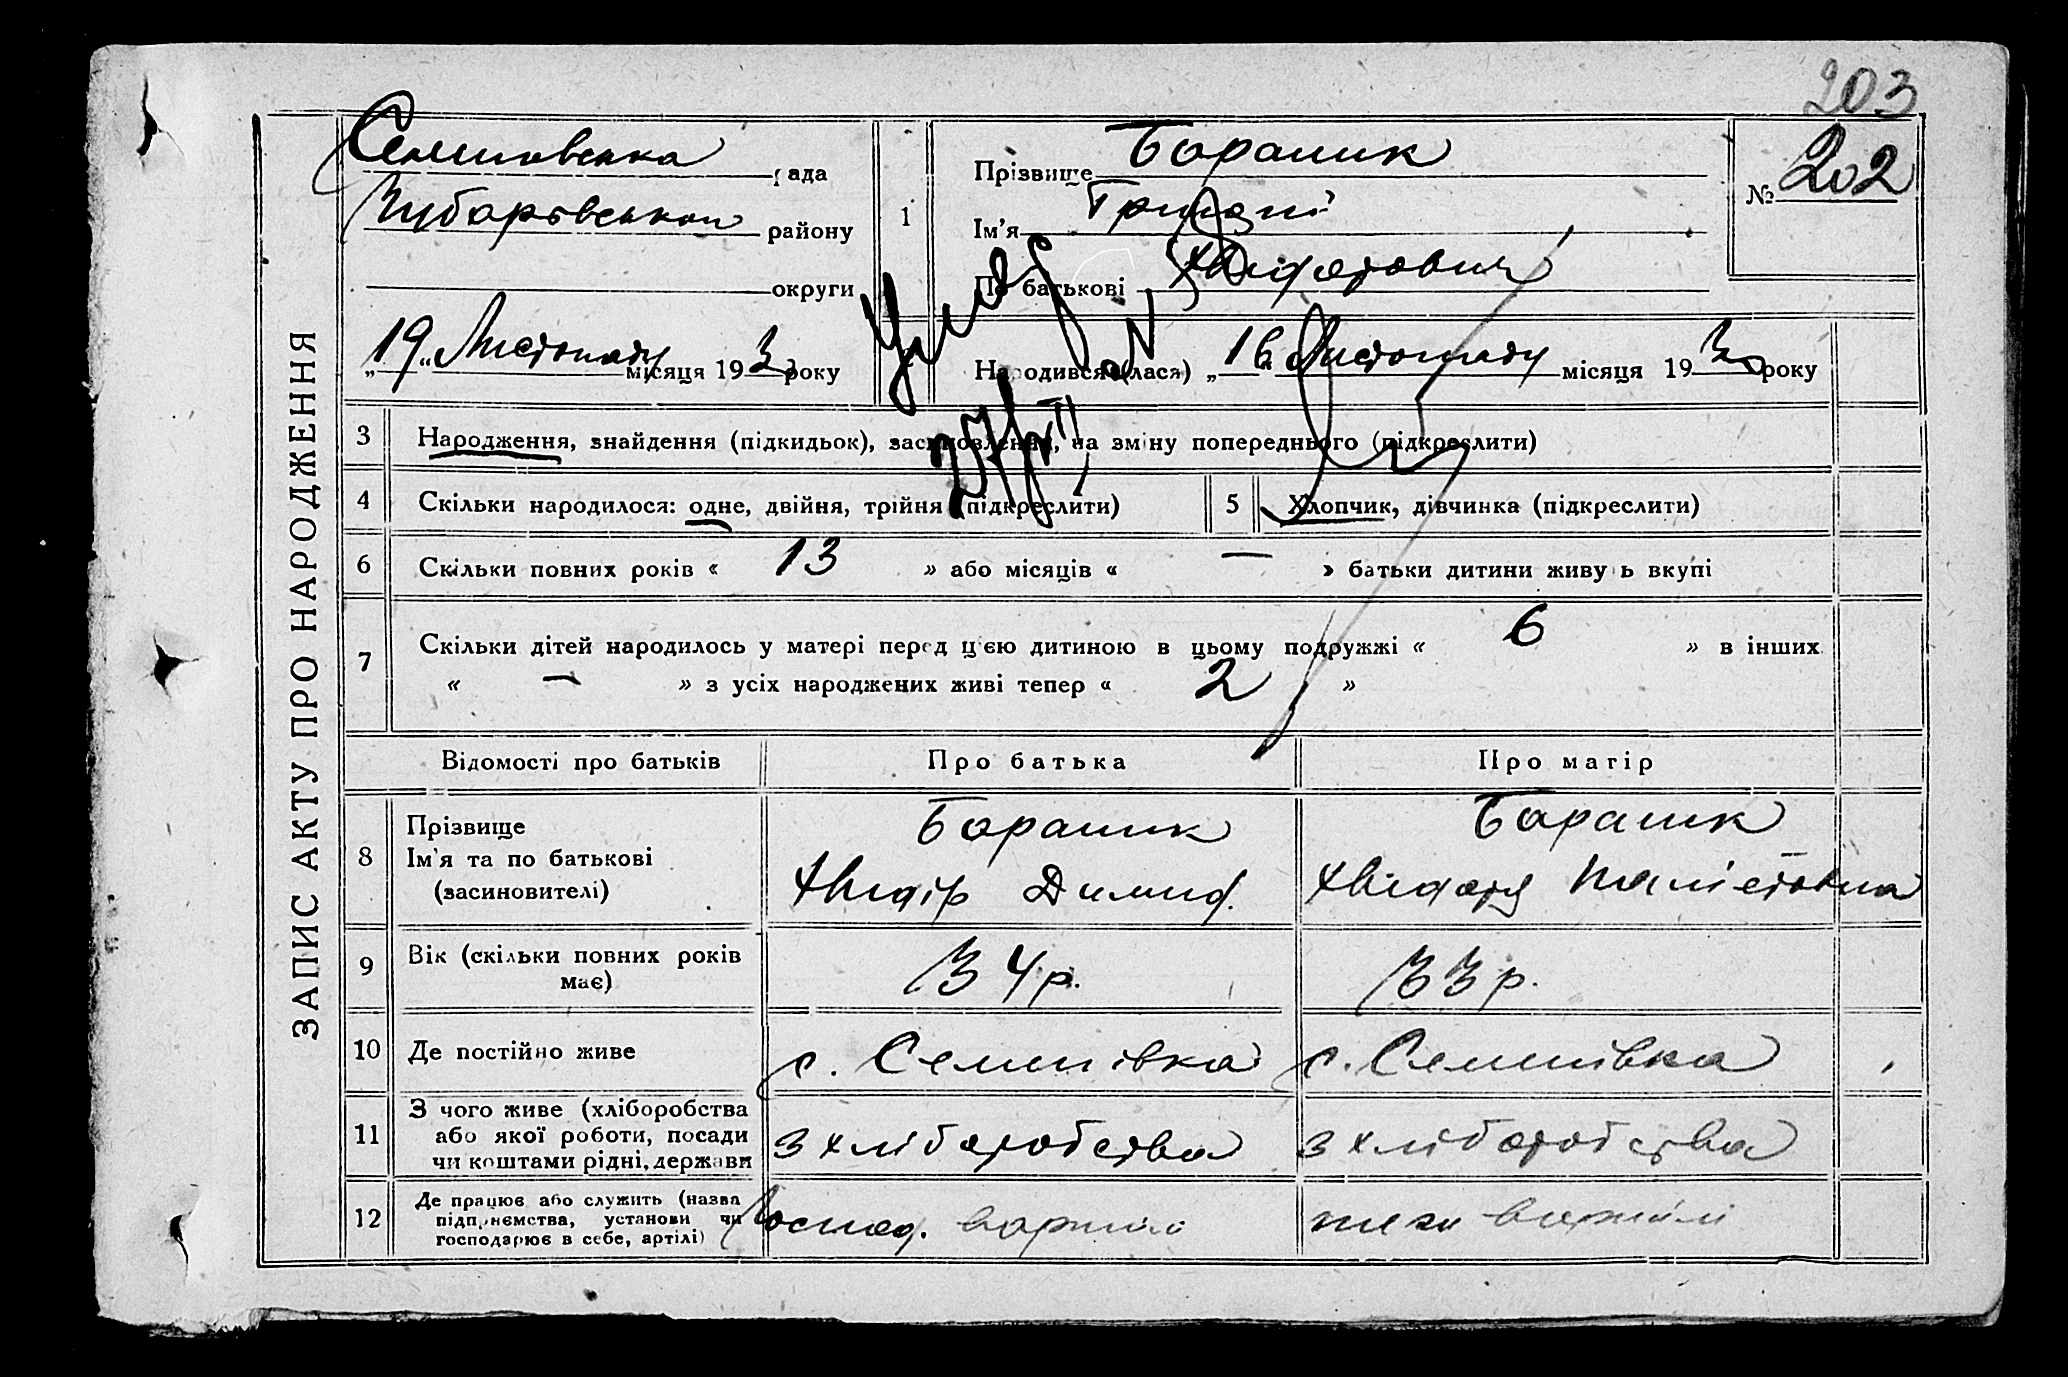 203
Семенівська рада
Чубарівського району
округи
„19“ Листопаду місяця 193 року
1
Прізвище Бараник
Ім'я Григорій
По батькові Хведорович
№ 202
Народився (лася) „16“ Листопаду місяця 193 року
Умер
27/XII
ЗАПИС АКТУ ПРО НАРОДЖЕННЯ
3 Народження, знайдення (підкидьок), засиновлення, на зміну попереднього (підкреслити)
4 Скільки народилося: одне, двійня, трійня (підкреслити)
5 Хлопчик, дівчинка (підкреслити)
6 Скільки повних років « 13 » або місяців « — » батьки дитини живуть вкупі
7 Скільки дітей народилось у матері перед цією дитиною в цьому подружжі « 6 » в інших
« — » з усіх народжених живі тепер « 2 »
Відомості про батьків
Про батька
Про матір
8 Прізвище
Ім'я та по батькові
(засиновителі)
Бараник
Хведір Демид.
Бараник
Хведора
9 Вік (скільки повних років
має)
34 р.
33 р.
10 Де постійно живе
с. Семенівка
с. Семенівка
11 З чого живе (хліборобства
або якої роботи, посади
чи коштами рідні, держави
З хліборобства
З хліборобства
12 Де працює або служить (назва
підприємства, установи чи
господарює в себе, артілі)
Господ. в артілі
теж в артілі